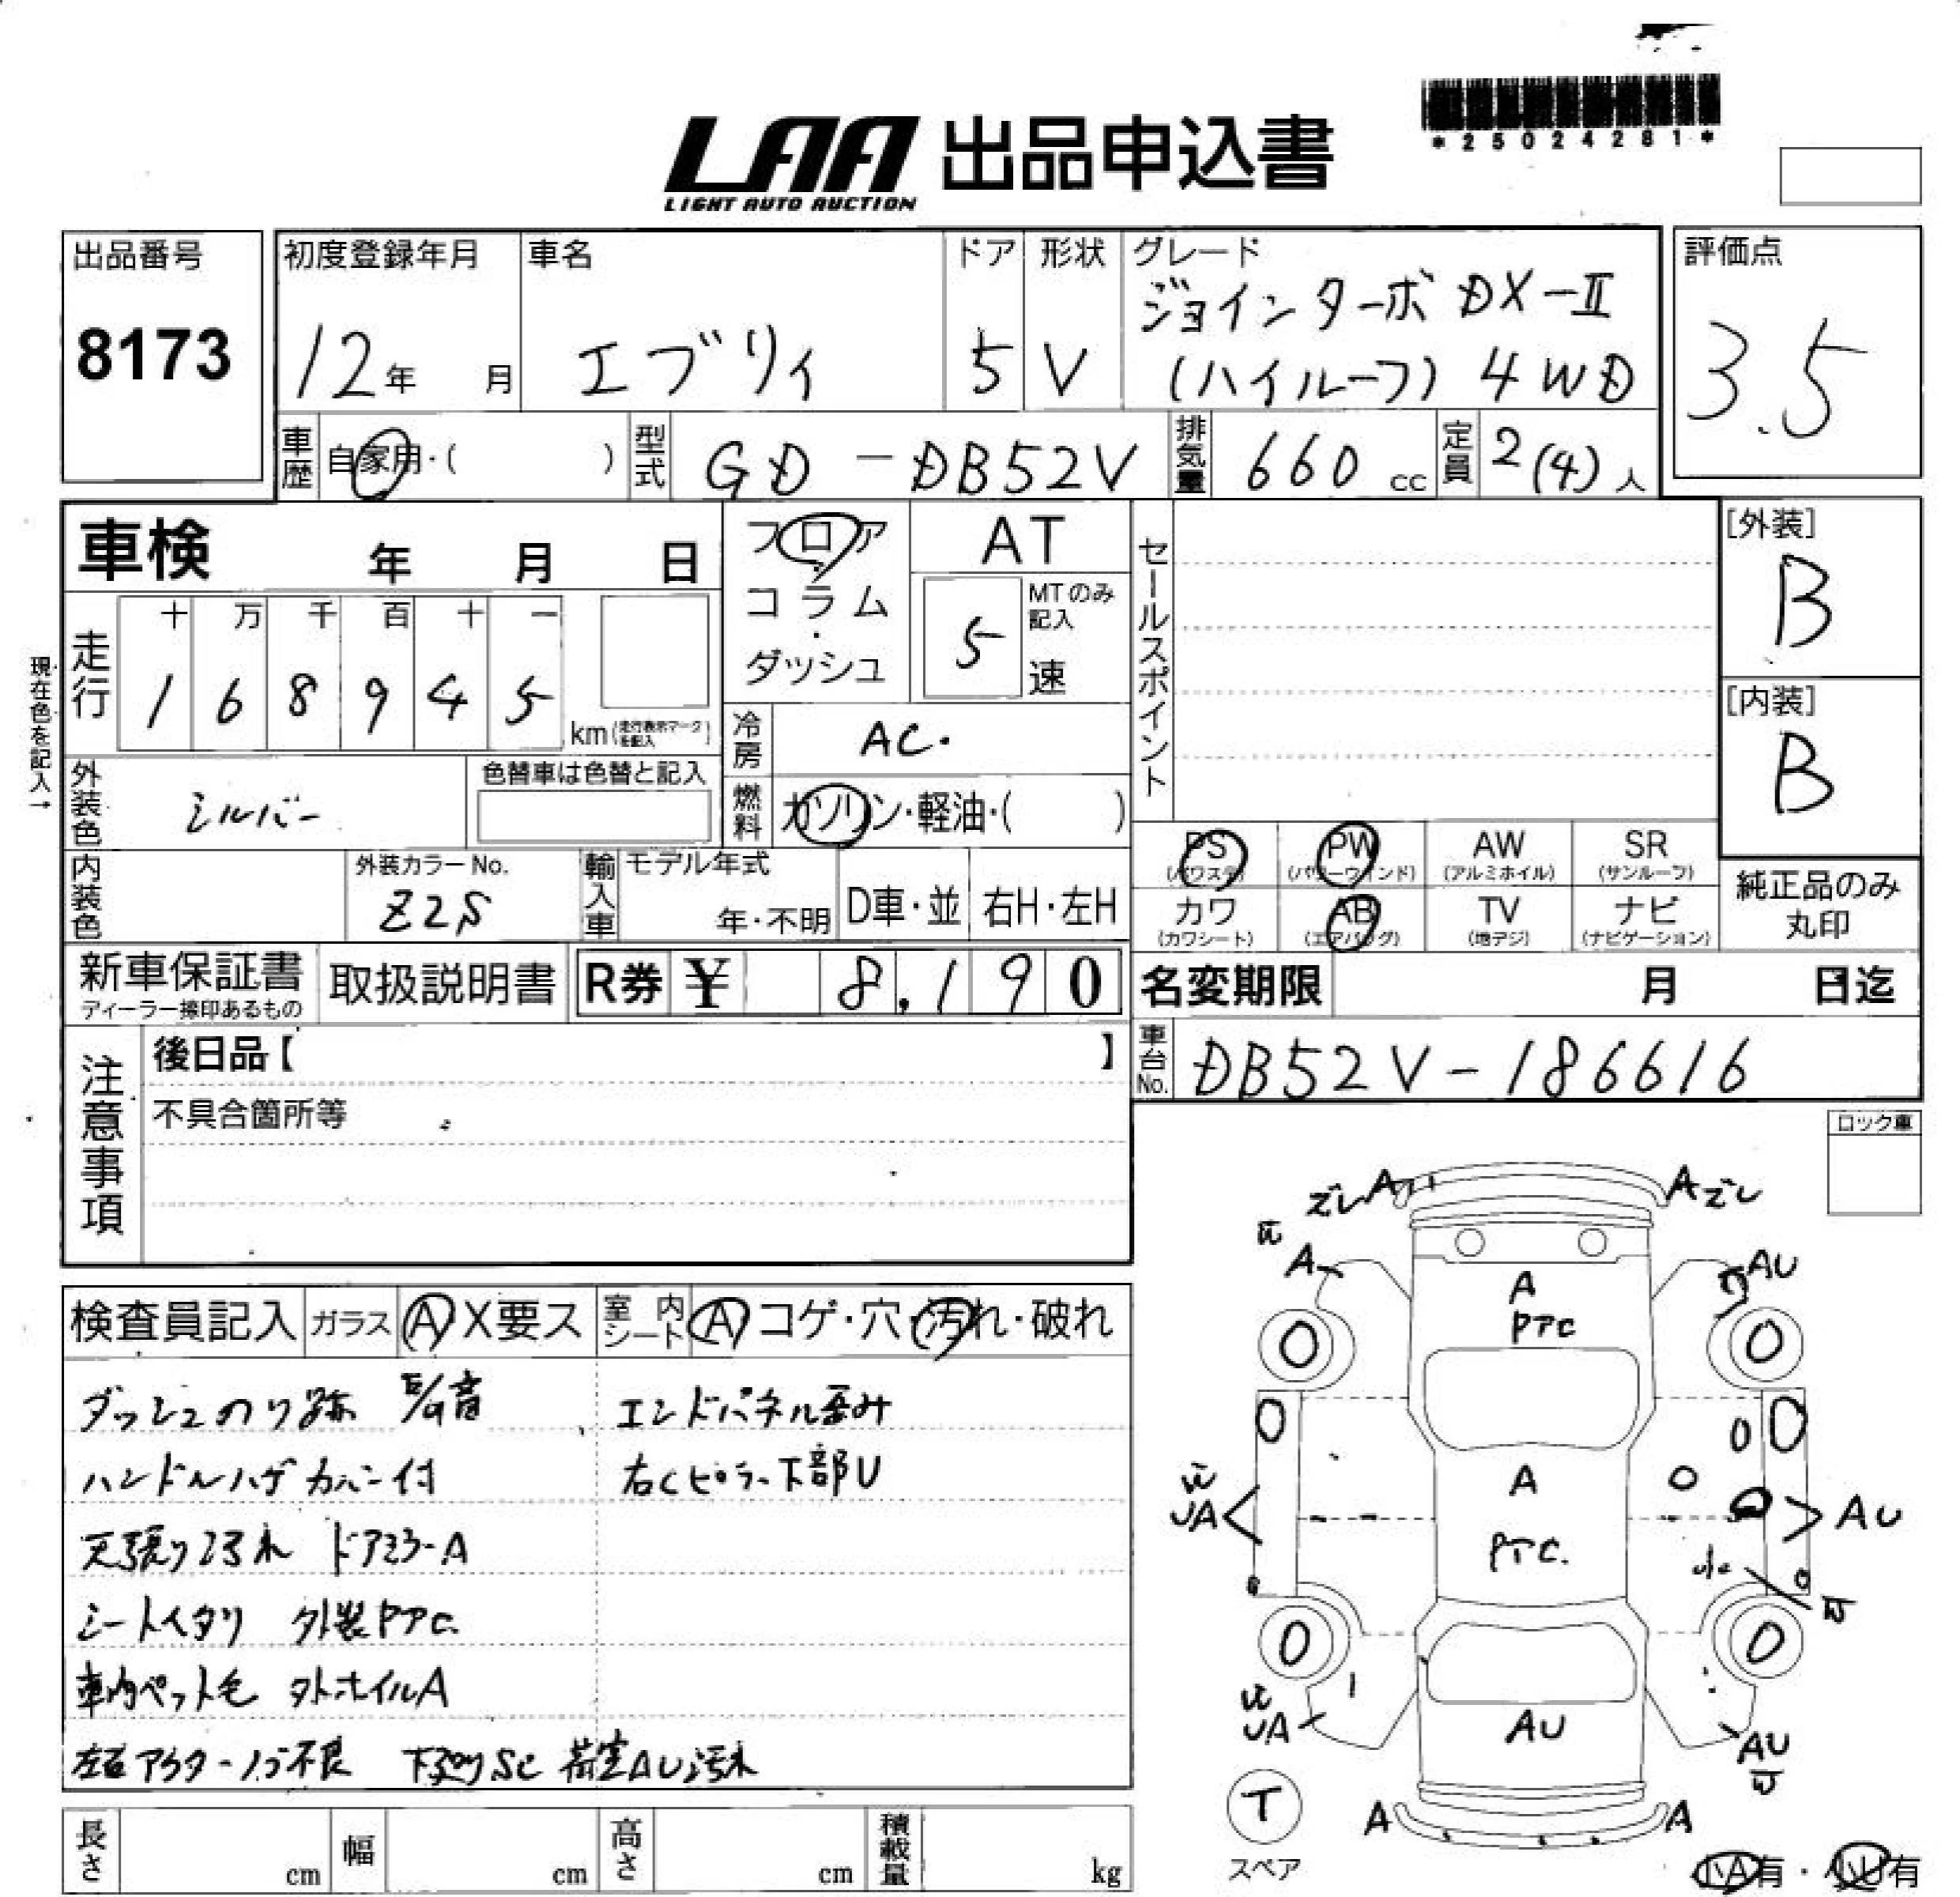 *25024281*
LAA 出品申込書
LIGHT AUTO AUCTION
出品番号
8173
初度登録年月
12年 月
車名
エブリィ
ドア
5
形状
V
グレード
ジョインターボ DX-II
(ハイルーフ) 4WD
評価点
3.5
車歴
自家用・( )
型式
GD-DB52V
排気量
660 cc
定員
2(4)人
車検 年 月 日
フロア
コラム
・
ダッシュ
AT
MTのみ記入
5
速
セールスポイント
[外装]
B
[内装]
B
現在色を記入→
走行
十 万 千 百 十 一
1 6 8 9 4 5
km(走行表示マークを記入)
冷房
AC.
外装色
シルバー
色替車は色替と記入
燃料
ガソリン・軽油・( )
内装色
外装カラーNo.
Z2S
輸入車
モデル年式
年・不明
D車・並
右H・左H
PS
(パワステ)
PW
(パワーウインド)
AW
(アルミホイル)
SR
(サンルーフ)
カワ
(カワシート)
AB
(エアバッグ)
TV
(地デジ)
ナビ
(ナビゲーション)
純正品のみ
丸印
新車保証書
ディーラー捺印あるもの
取扱説明書
R券 ¥ 8,190
名変期限 月 日迄
車台No.
DB52V-186616
注意事項
後日品【 】
不具合箇所等
ロック車
検査員記入
ガラス
A X要ス
室内シート
A コゲ・穴・汚れ・破れ
ダッシュのり跡 E/G音
ハンドルハゲカバー付
天張り汚れ ドアミラーA
シートヘタリ 外装PTC
車内ペット毛 タイホイルA
左右アウターノブ不良 下廻りSC 荷室AU汚れ
エンドパネル歪み
右Cピラー下部U
ズレA
Aズレ
A
AU
A
PTC
UA
A
PTC.
AU
UA
AU
AU
T
スペア
A
A
小A有・小U有
長さ cm
幅 cm
高さ cm
積載量 kg